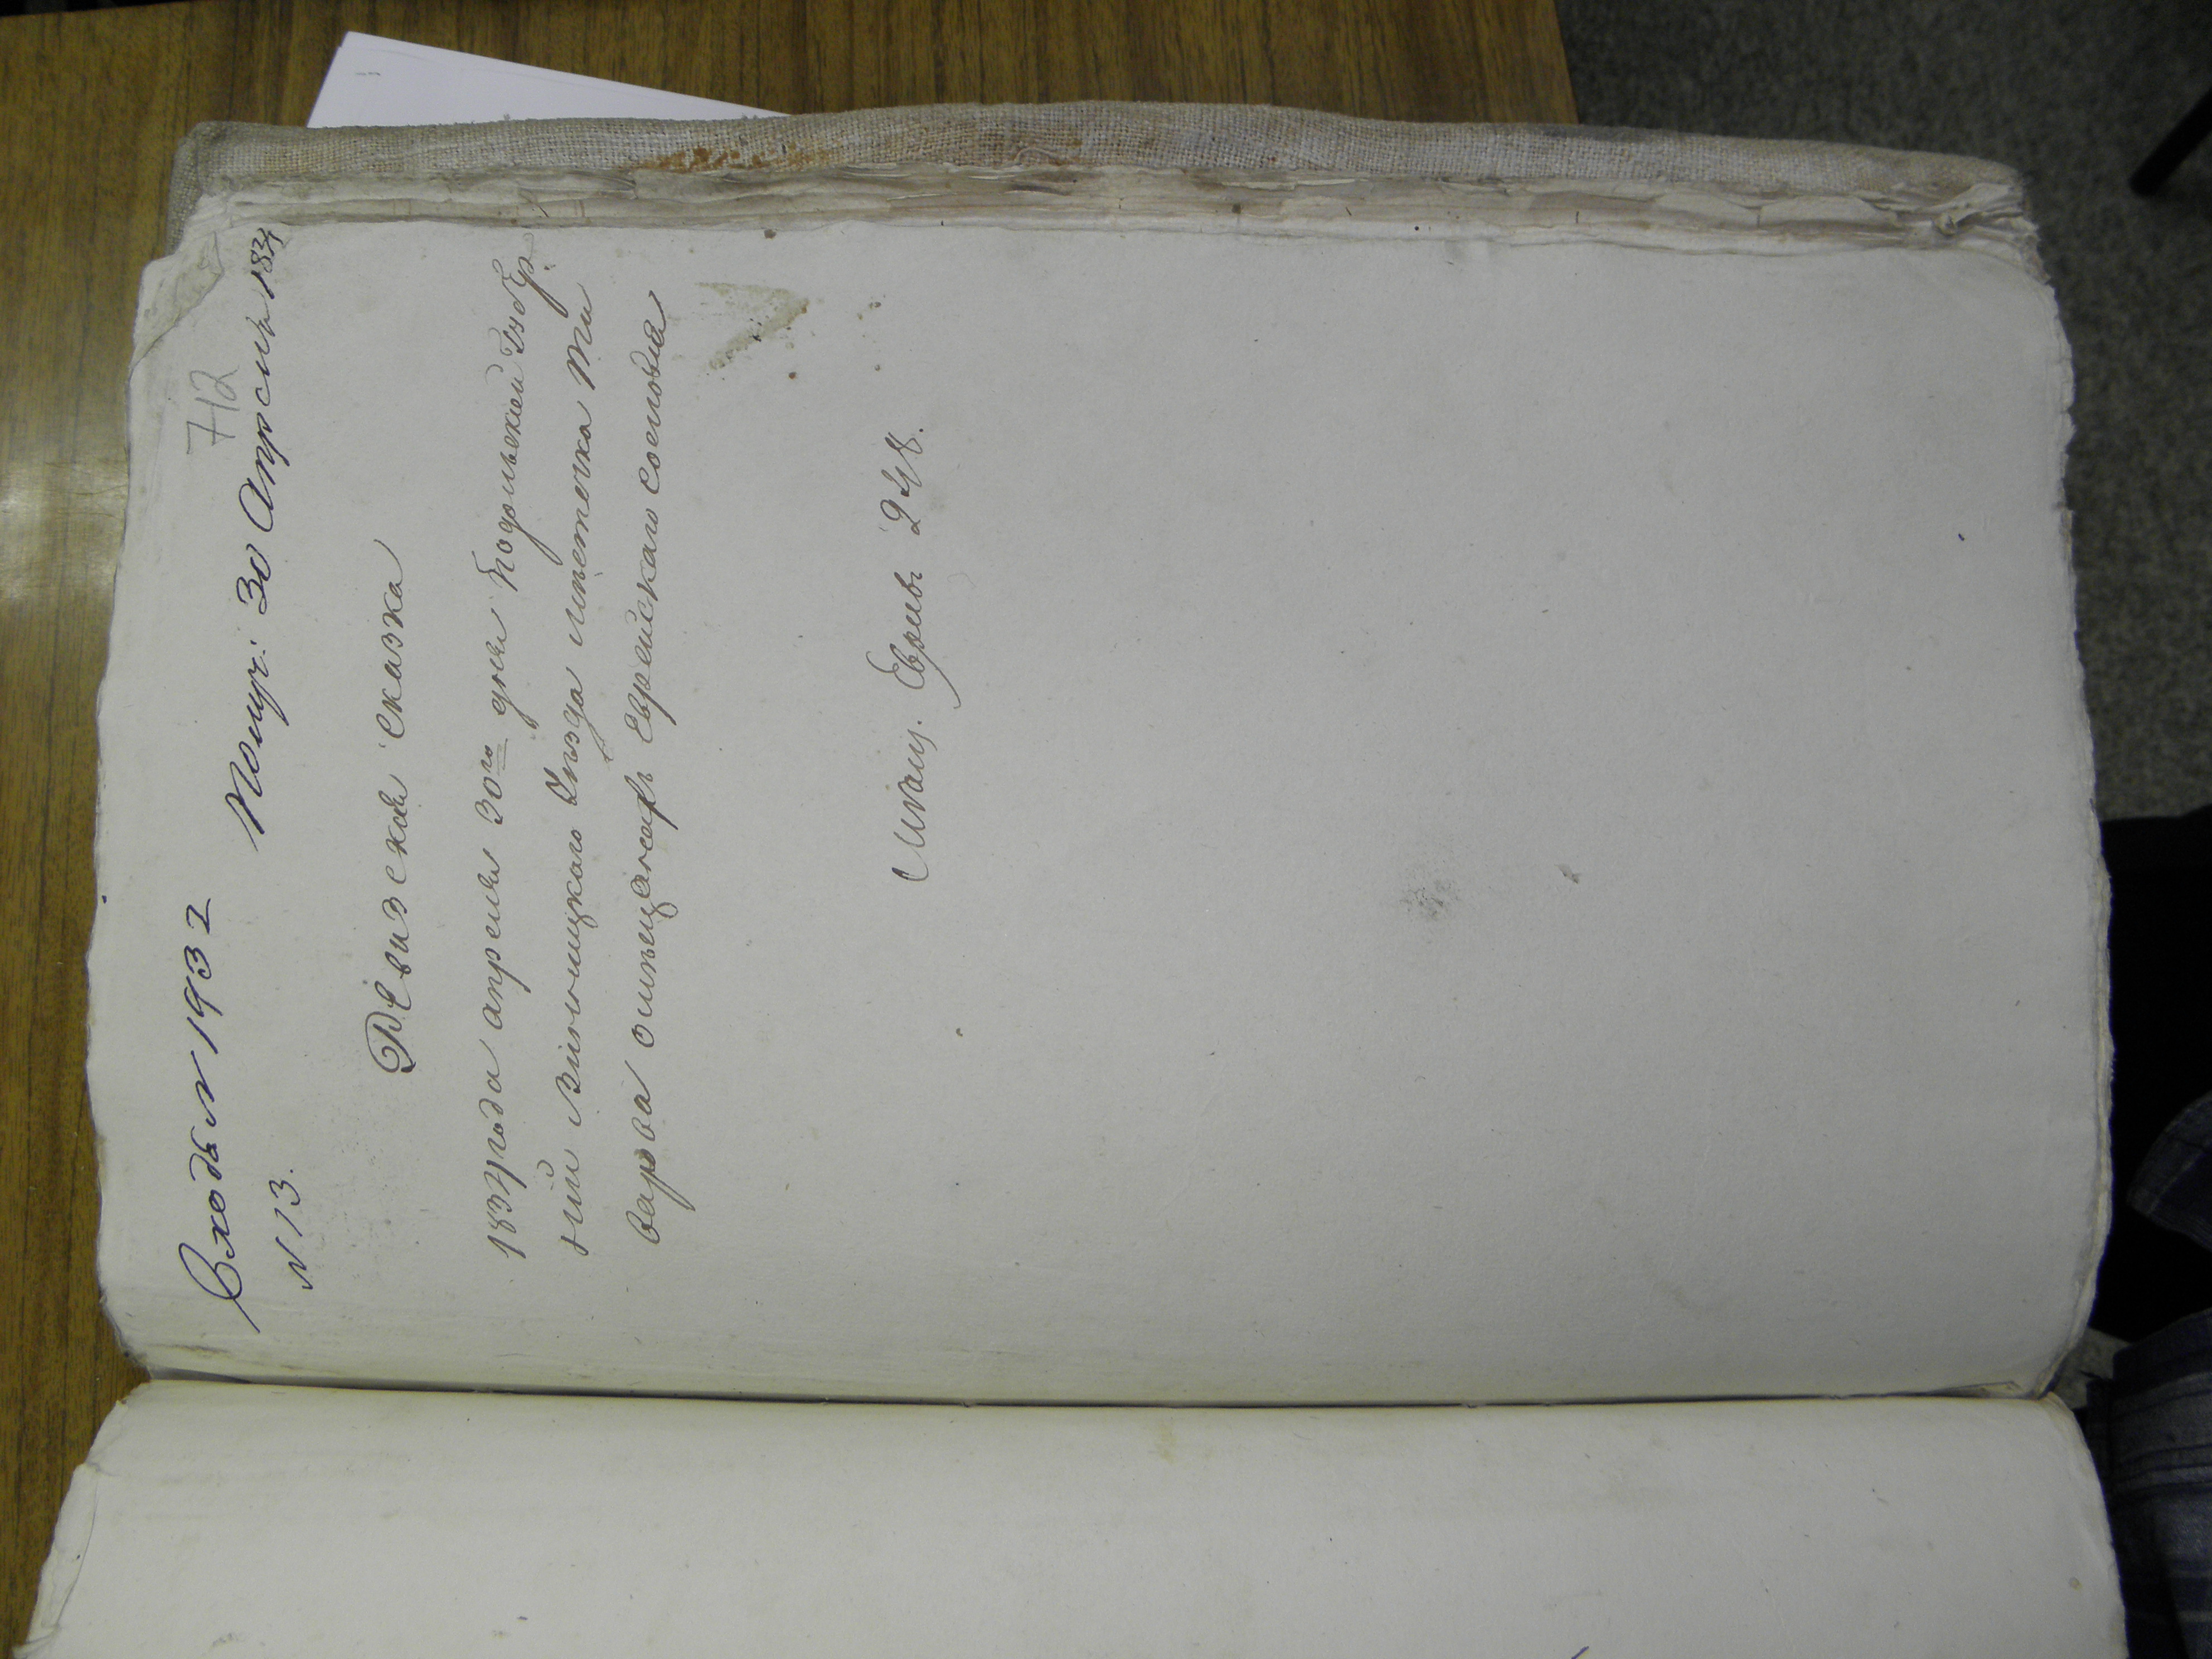 712
Входъ N 1932
Получ: 30 Апреля 1834
N 13.
Ревизская сказка
1834 года апреля 30го дня Подольской Губер
нии Винницкого Уезда местечка Ти
врова о мещанахъ Еврейского сословия
Мещ. Евреевъ 248.